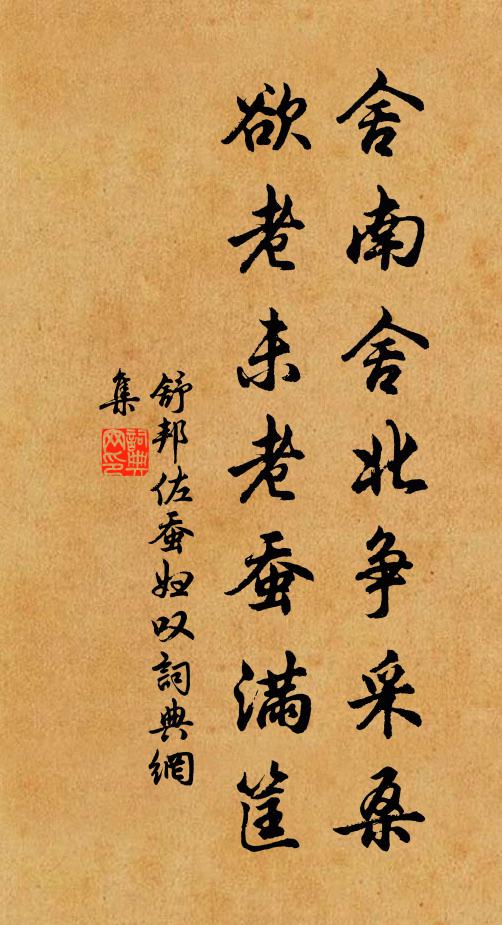 舍南舍北争采桑
欲老未老蚕满筐
舒邦佐蚕妇叹詞典網
集
詞典
网印